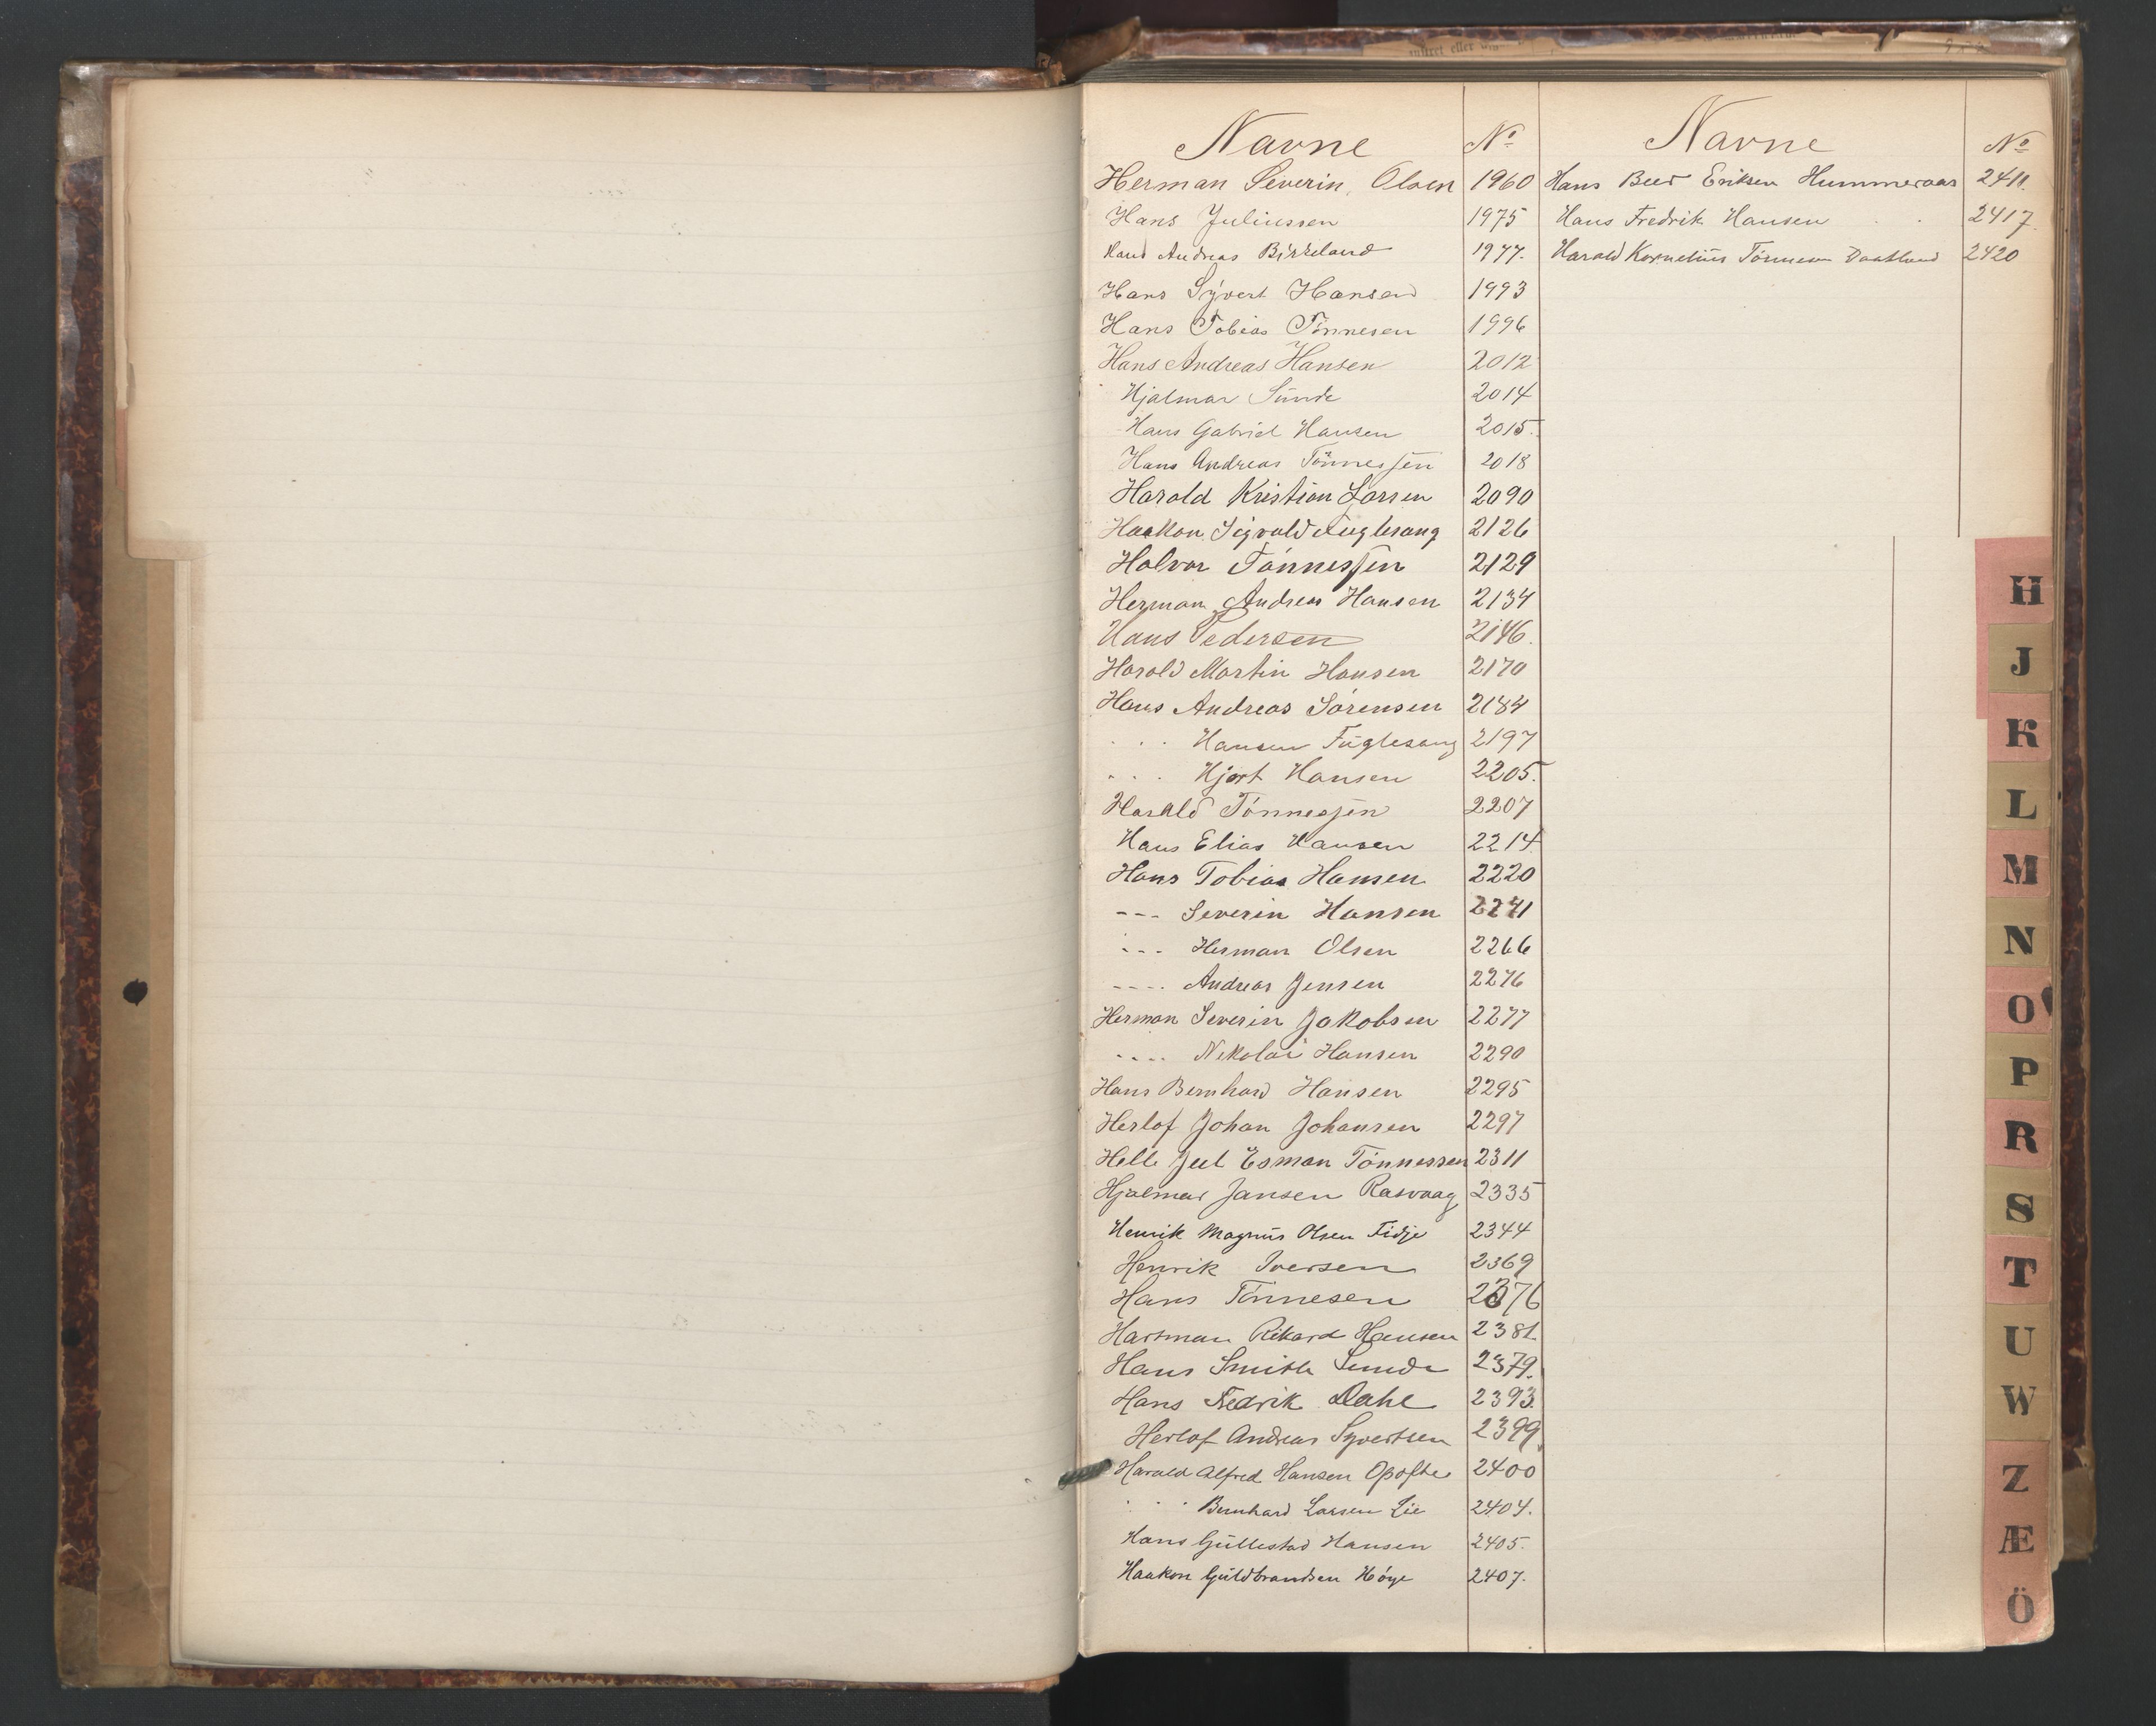 Navne No
Herman Severin Olsen 1960
Hans Juliussen 1975
Hans Andreas Birkeland 1977.
Hans Syvert Hansen 1993
Hans Tobias Tönnesen 1996
Hans Andreas Hansen 2012
Hjalmar Sunde 2014
Hans Gabriel Hansen 2015.
Hans Andreas Tönnessen 2018
Harald Kristian Larsen 2090
Haakon Sigvald Fuglesang 2126
Halvor Tönnessen 2129
Herman Andreas Hansen 2134
Hans Pedersen 2146.
Harald Martin Hansen 2170
Hans Andreas Sörensen 2184
. . . Hansen Fuglesang 2197
. . . Hjort Hansen 2205.
Harald Tönnessen 2207
Hans Elias Hansen 2214
Hans Tobias Hansen 2220
--- Severin Hansen 2241
--- Herman Olsen 2266
---- Andreas Jensen 2276
Herman Severin Jakobsen 2277
---- Nikolai Hansen 2290
Hans Bernhard Hansen 2295
Herlof Johan Johansen 2297
Helle Juel Esman Tönnessen 2311
Hjalmar Jansen Rasvaag 2335
Henrik Magnus Olsen Fidje 2344
Henrik Iversen 2369
Hans Tönnesen 2376
Hartman Rikard Hansen 2381
Hans Smith Sunde 2379.
Hans Fredrik Dahl 2393.
Herlof Andreas Syvertsen 2399.
Harald Alfred Hansen Opofte 2400
. . . Bernhard Larsen Lie 2404.
Hans Gullestad Hansen 2405.
Haakon Guldbrandsen Höye 2407.
Navne No
Hans Eriksen Hummeraas 2411.
Hans Fredrik Hansen 2417
Harald Kornelius Tönnesen Daatland 2420
H
J
K
L
M
N
O
P
R
S
T
U
W
Z
Æ
Ö